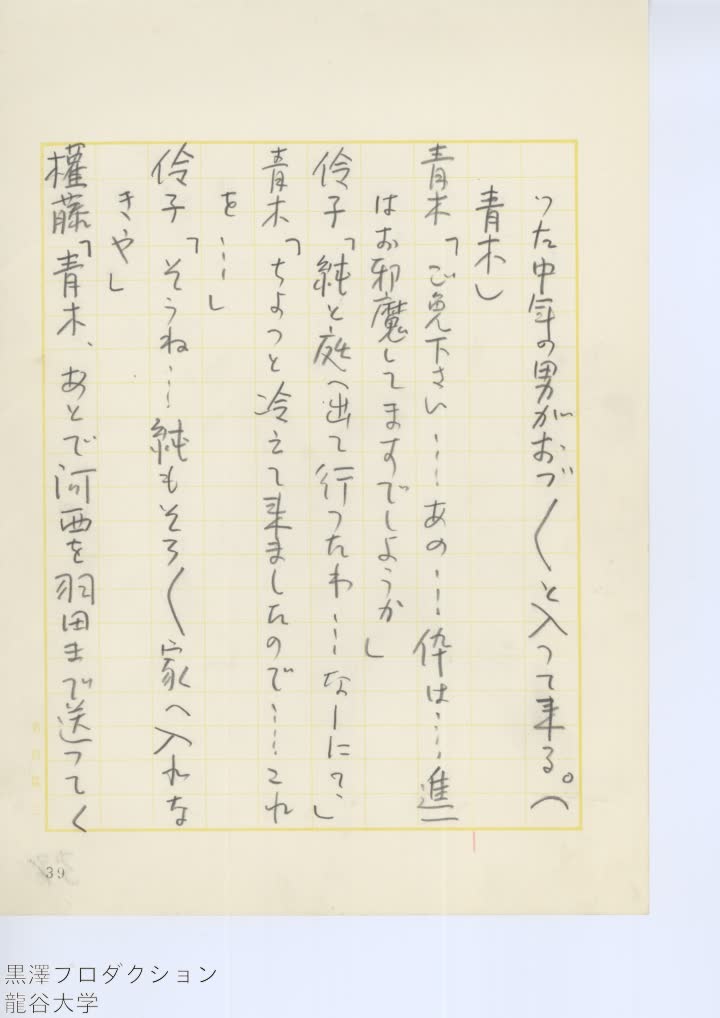 った中年の男がおづ〱と入って来る。（
青木）
青木「ご免下さい…あの…伜は…進一
はお邪魔してますでしようか」
伶子「純と庭へ出て行ったわ…なーに？」
青木「ちよっと冷えて来ましたので…これ
を…」
伶子「そうね…純もそろ〱家へ入れな
きや」
権藤「青木、あとで河西を羽田まで送ってく
39
黒澤プロダクション
龍谷大学